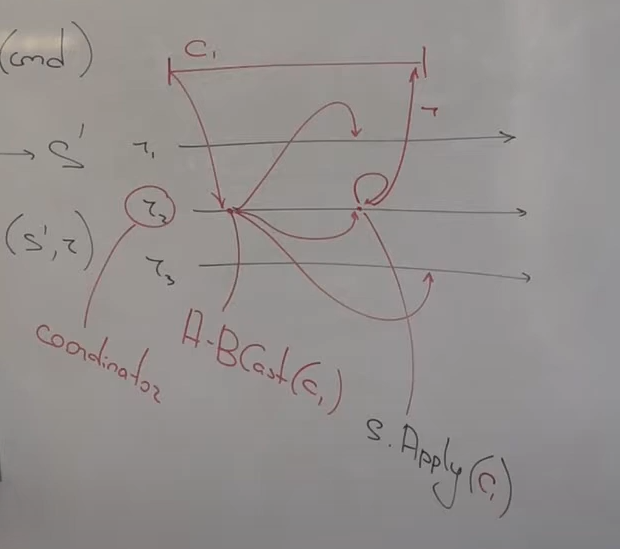 (cmd)
C₁
→ S'
r₁
r
r₂
(S', r)
r₃
coordinator
A-BCast(C₁)
S.Apply(C₁)